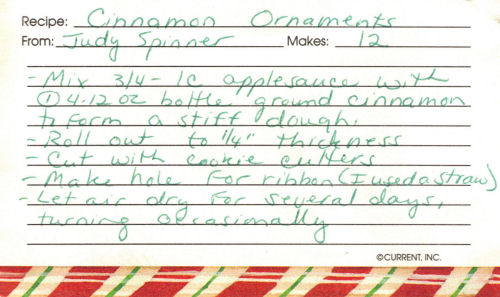 Recipe: Cinnamon Ornaments
From: Judy Spinner Makes: 12
- Mix 3/4 - 1c applesauce with
① 4.12 oz bottle ground cinnamon
to form a stiff dough.
- Roll out to 1/4" thickness
- Cut with cookie cutters
- Make hole for ribbon (I used a straw)
- Let air dry for several days,
turning occasionally
©CURRENT, INC.